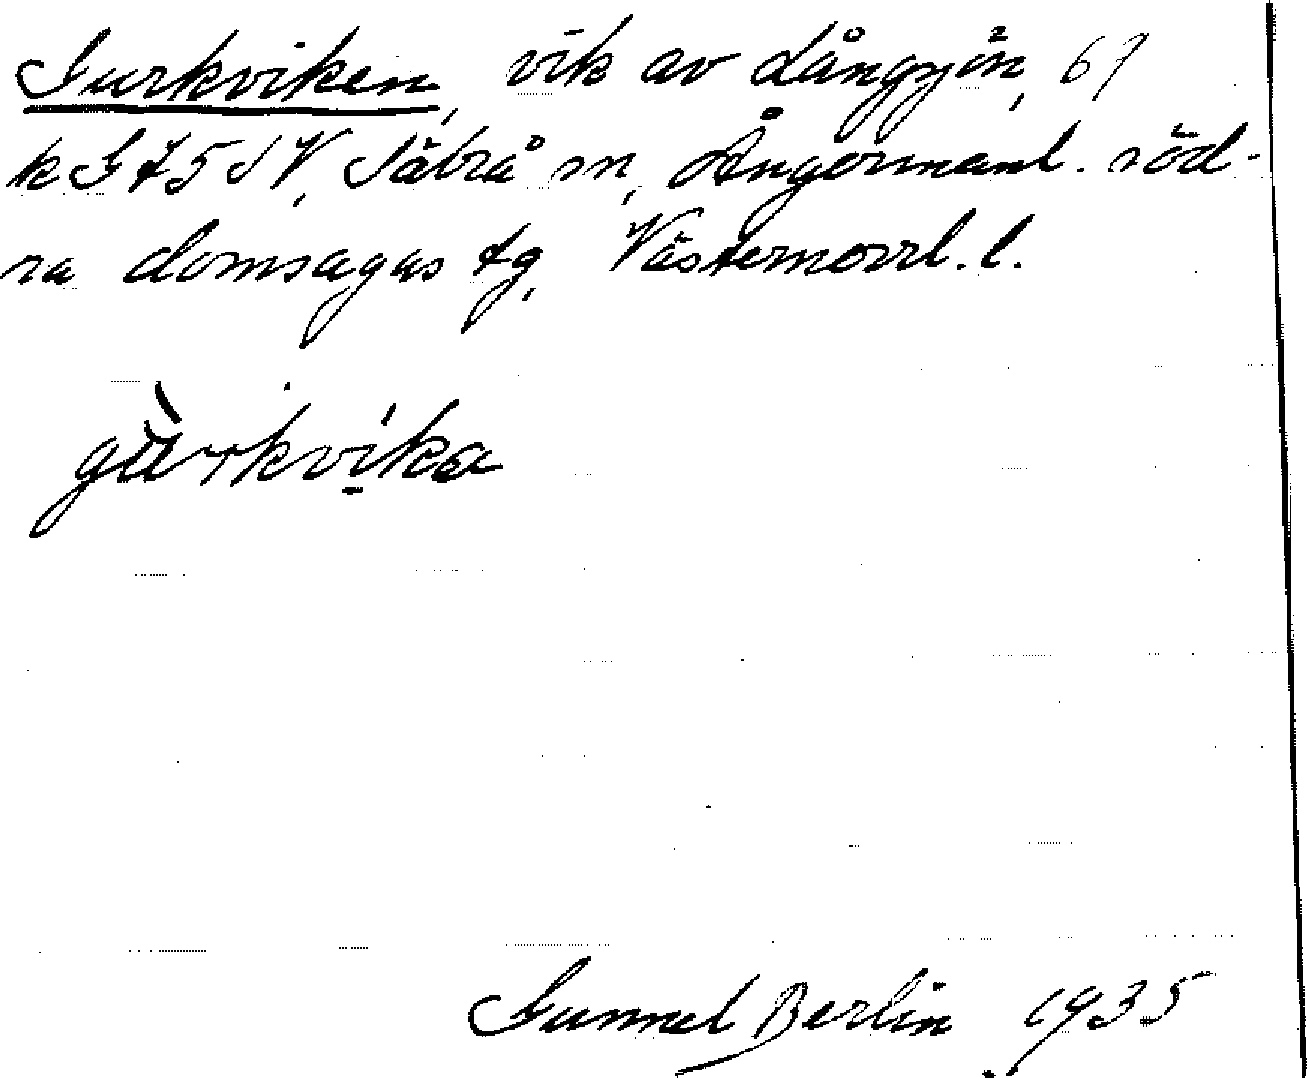 Gurkviken, vik av Långsjön, 67
k G 75 SV, Säbrå sn, Ångermanl. söd-
ra domsagas tg, Västernorrl. l.
gùrkvíka
Gunnel Berlin 1935